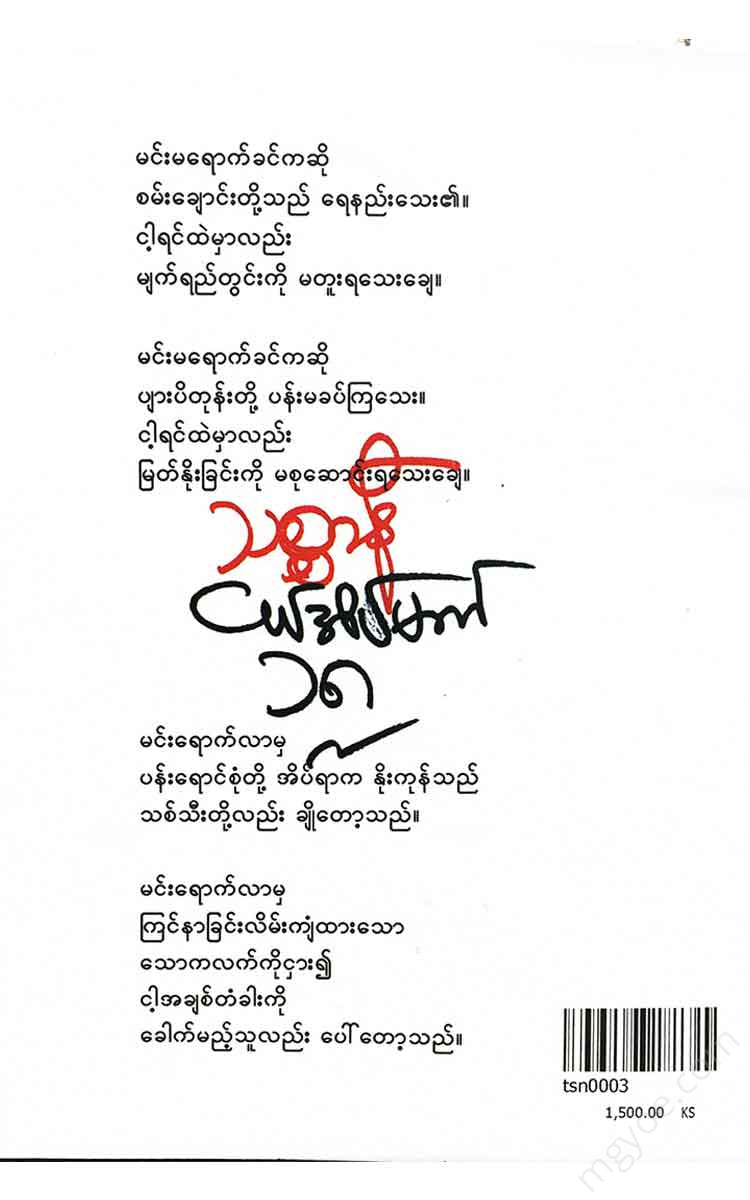 မင်းမရောက်ခင်ကဆို
စမ်းချောင်းတို့သည် ရေနည်းသေး၏။
ငါ့ရင်ထဲမှာလည်း
မျက်ရည်တွင်းကို မတူးရသေးချေ။
မင်းမရောက်ခင်ကဆို
ပျားပိတုန်းတို့ ပန်းမခပ်ကြသေး။
ငါ့ရင်ထဲမှာလည်း
မြတ်နိုးခြင်းကို မစုဆောင်းရသေးချေ။
သစ္စာနီ
ငယ်အိပ်မက်
၁၅
မင်းရောက်လာမှ
ပန်းရောင်စုံတို့ အိပ်ရာက နိုးကုန်သည်
သစ်သီးတို့လည်း ချိုတော့သည်။
မင်းရောက်လာမှ
ကြင်နာခြင်းလိမ်းကျံထားသော
သောကလက်ကိုငှား၍
ငါ့အချစ်တံခါးကို
ခေါက်မည့်သူလည်း ပေါ်တော့သည်။
tsn0003
1,500.00 KS
mgyoe.com